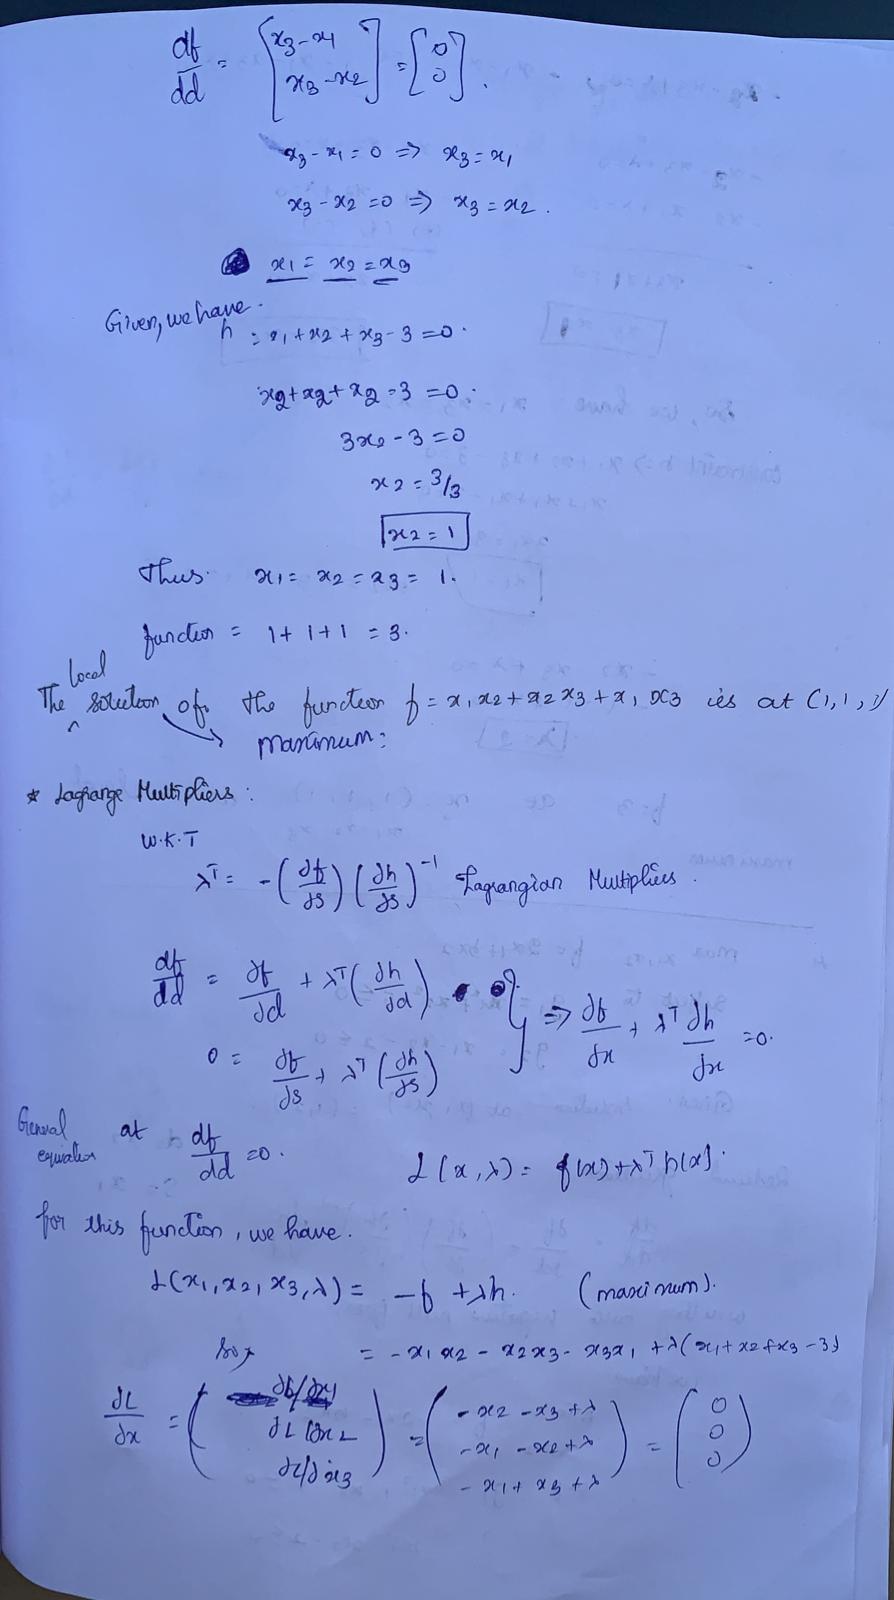 df/dd = [x3-x1 x3-x2] = [0 0].
x3-x1 = 0 => x3 = x1
x3-x2 = 0 => x3 = x2.
x1 = x2 = x3
Given, we have.
h = x1+x2+x3-3 = 0.
x2+x2+x2-3 = 0.
3x2-3 = 0
x2 = 3/3
x2 = 1
Thus. x1 = x2 = x3 = 1.
function = 1+1+1 = 3.
The local solution of the function f = x1x2+x2x3+x1x3 is at (1,1,1)
maximum:
* Lagrange Multipliers:
W.K.T
λᵀ = -(∂f/∂s)(∂h/∂s)⁻¹ Lagrangian Multipliers.
df/dd = ∂f/∂d + λᵀ(∂h/∂d)
0 = ∂f/∂s + λᵀ(∂h/∂s) } => ∂f/∂x + λᵀ ∂h/∂x = 0.
General equation at df/dd = 0. L(x,λ) = f(x)+λᵀh(x).
for this function, we have.
L(x1,x2,x3,λ) = -f+λh. (maximum).
so, = -x1x2-x2x3-x3x1+λ(x1+x2+x3-3)
∂L/∂x = (∂f/∂x1 ∂L/∂x2 ∂L/∂x3) = (-x2-x3+λ -x1-x2+λ -x1+x3+λ) = (0 0 0)